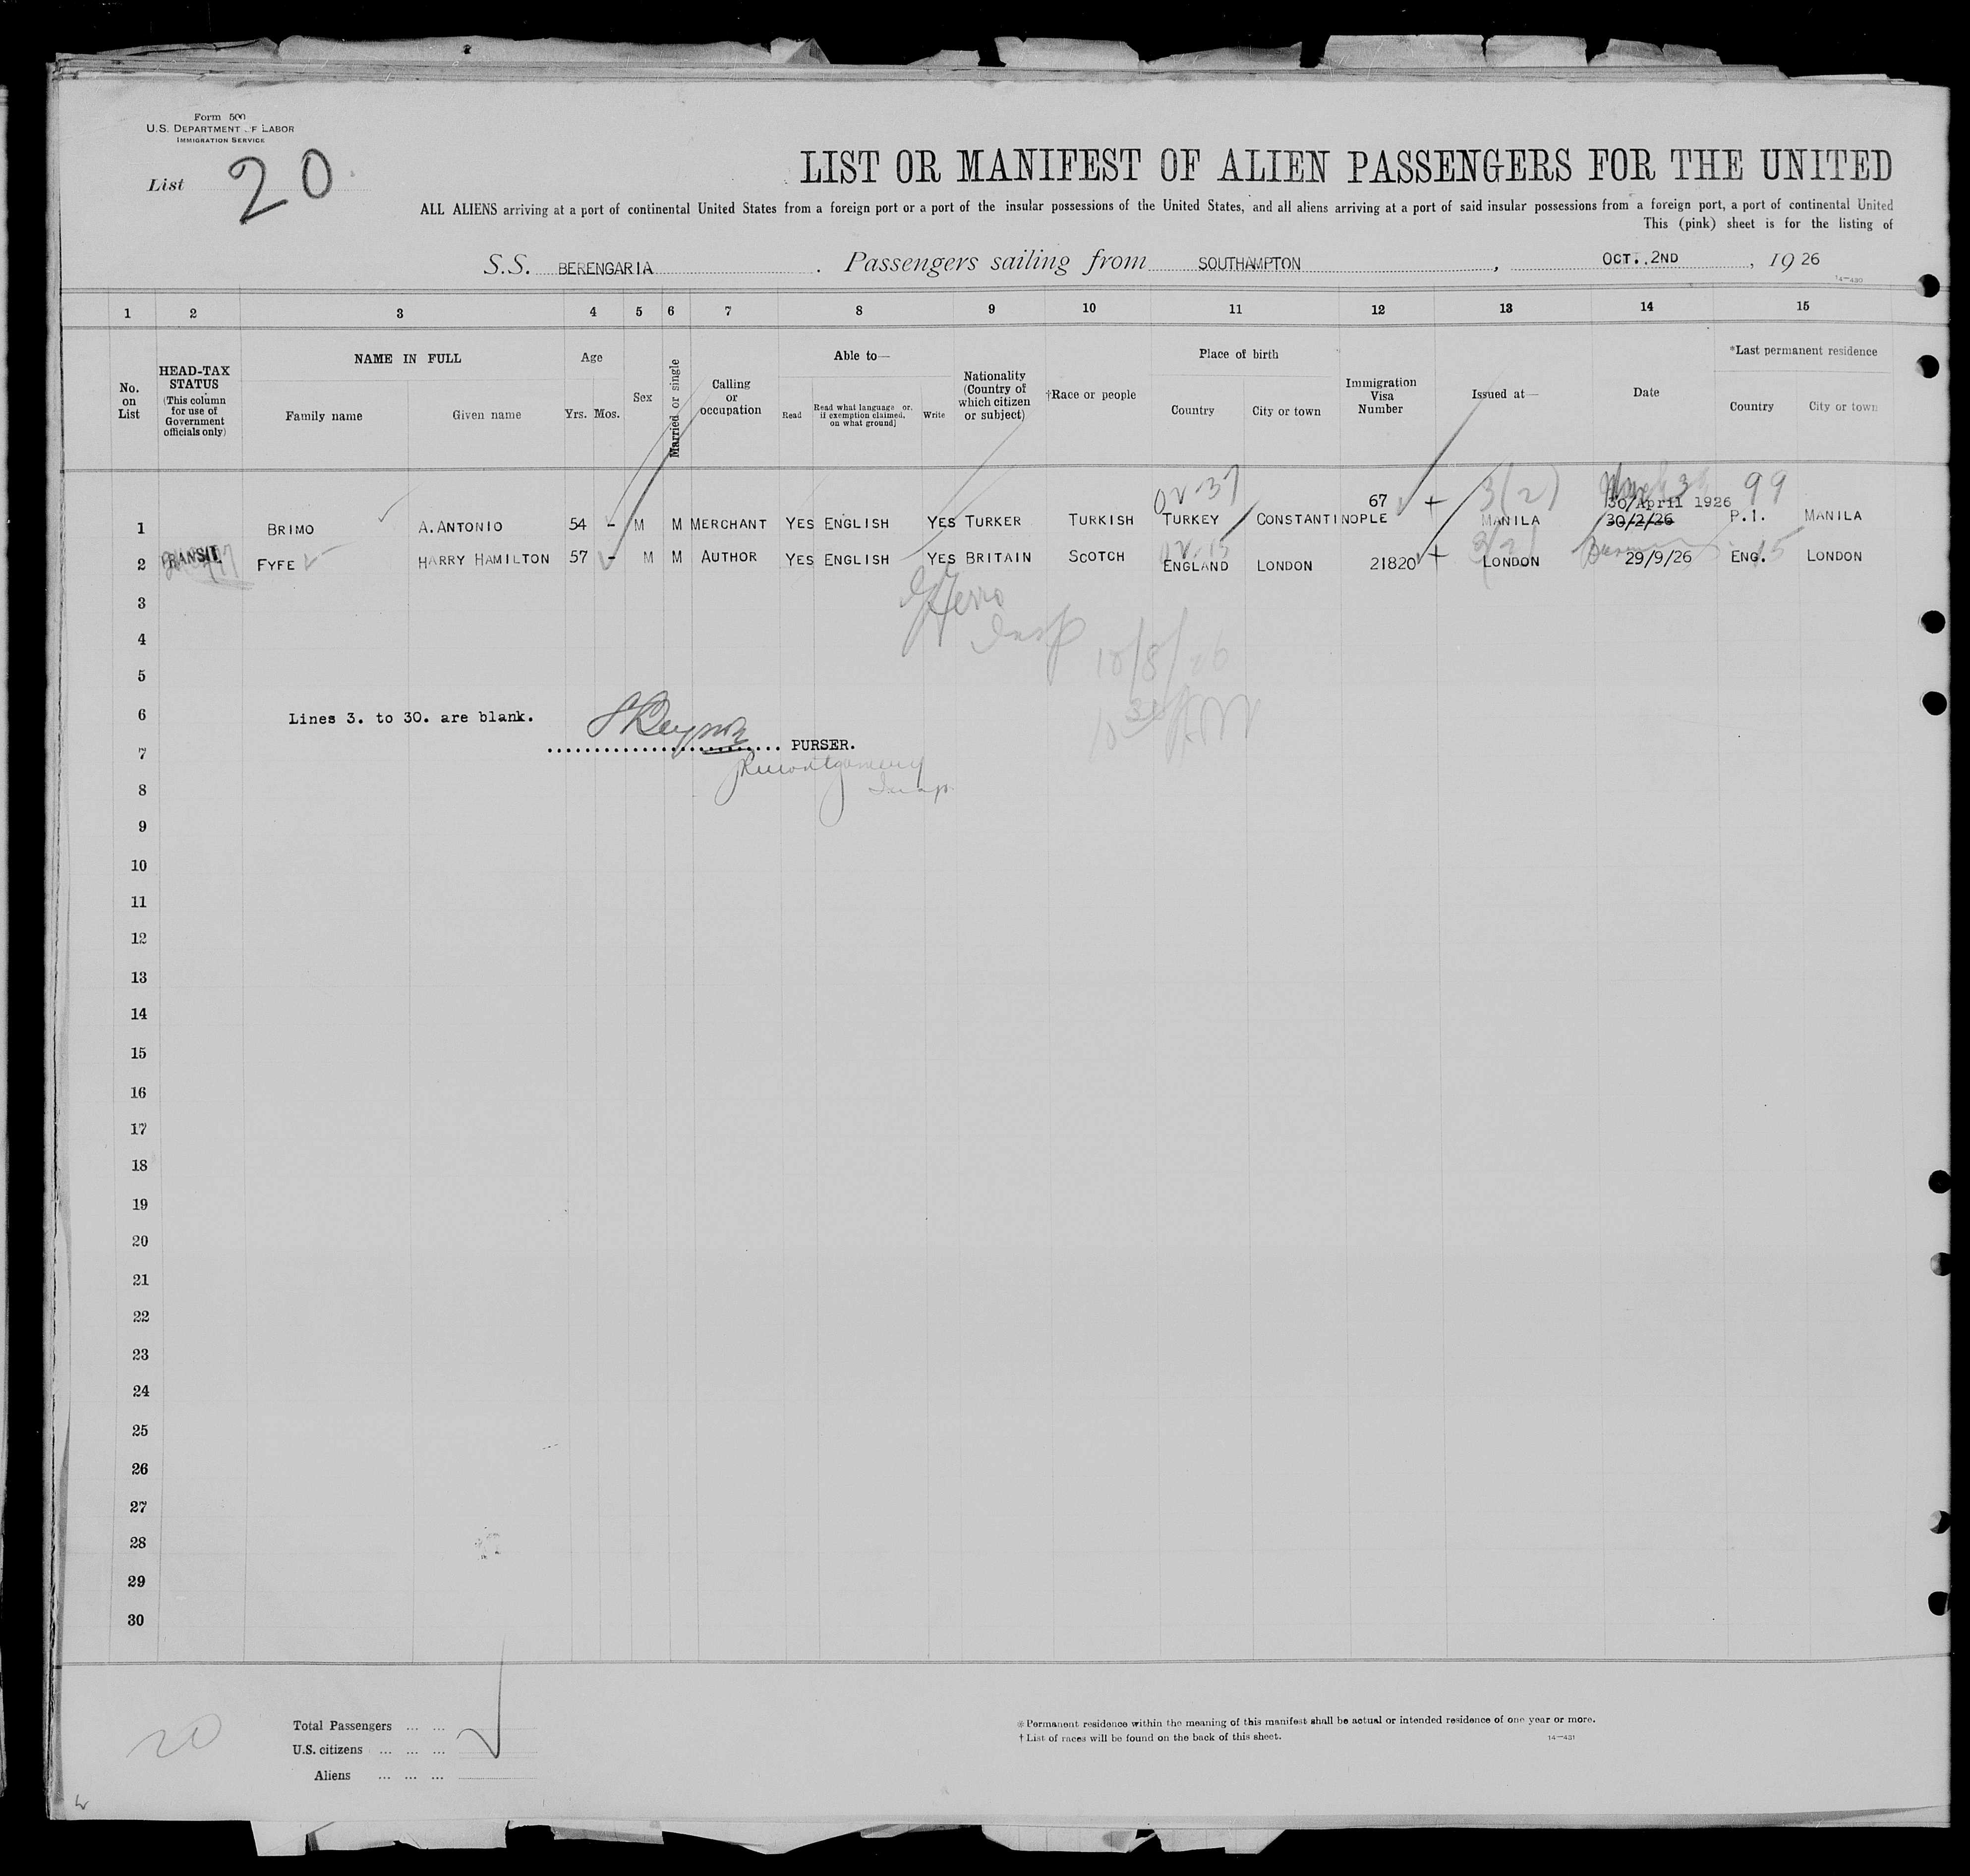 Form 500
U.S. DEPARTMENT OF LABOR
IMMIGRATION SERVICE
List 20
LIST OR MANIFEST OF ALIEN PASSENGERS FOR THE UNITED
ALL ALIENS arriving at a port of continental United States from a foreign port or a port of the insular possessions of the United States, and all aliens arriving at a port of said insular possessions from a foreign port, a port of continental United
This (pink) sheet is for the listing of
S.S. BERENGARIA. Passengers sailing from SOUTHAMPTON, OCT. 2ND, 1926
14—430
1 2 3 4 5 6 7 8 9 10 11 12 13 14 15
No. on List
HEAD-TAX STATUS (This column for use of Government officials only)
NAME IN FULL
Family name Given name
Age
Yrs. Mos.
Sex
Married or single
Calling or occupation
Able to—
Read
Read what language or, if exemption claimed, on what ground]
Write
Nationality (Country of which citizen or subject)
†Race or people
Place of birth
Country City or town
Immigration Visa Number
Issued at—
Date
*Last permanent residence
Country City or town
OV-37 3(2) 99
1 BRIMO A. ANTONIO 54 - M M MERCHANT YES ENGLISH YES TURKER TURKISH TURKEY CONSTANTINOPLE 67 + MANILA 30/April 1926 30/2/26 P.I. MANILA
2 TRANSIT FYFE HARRY HAMILTON 57 - M M AUTHOR YES ENGLISH YES BRITAIN SCOTCH ENGLAND LONDON 21820 + LONDON 29/9/26 ENG. LONDON
3
4 Insp
5 10/8/26
6 Lines 3. to 30. are blank.
7 PURSER.
Montgomery
8 Insp.
9
10
11
12
13
14
15
16
17
18
19
20
21
22
23
24
25
26
27
28
29
30
20
Total Passengers ... ...
U.S. citizens ... ... ...
Aliens ... ... ...
* Permanent residence within the meaning of this manifest shall be actual or intended residence of one year or more.
† List of races will be found on the back of this sheet.
14—431